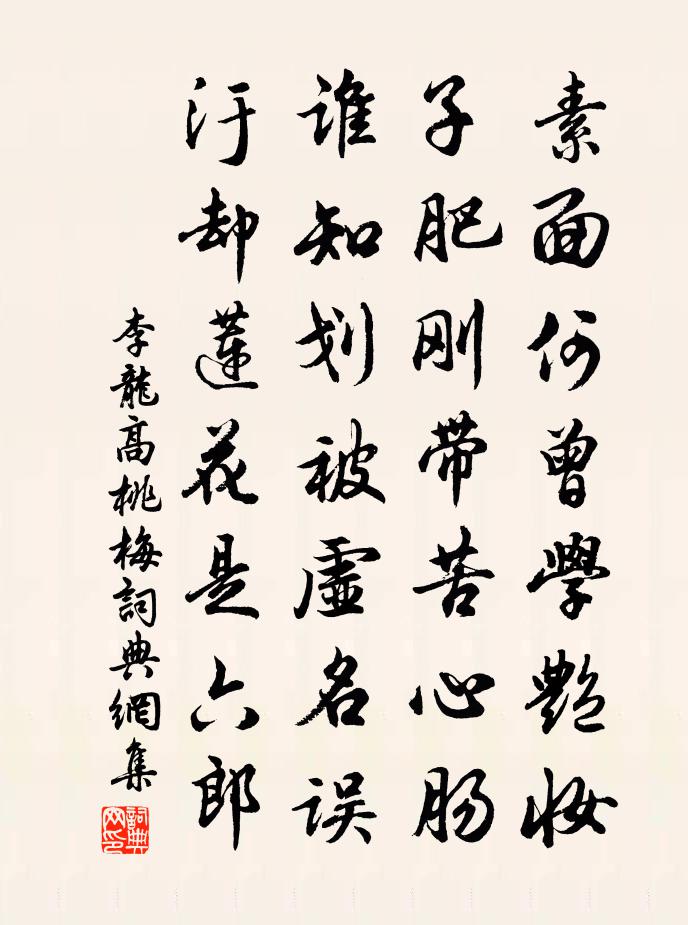 素面何曾學艷妝
子肥刚带苦心肠
谁知划被虚名误
汙却蓮花是六郎
李龍高桃梅詞典網集
詞典网印